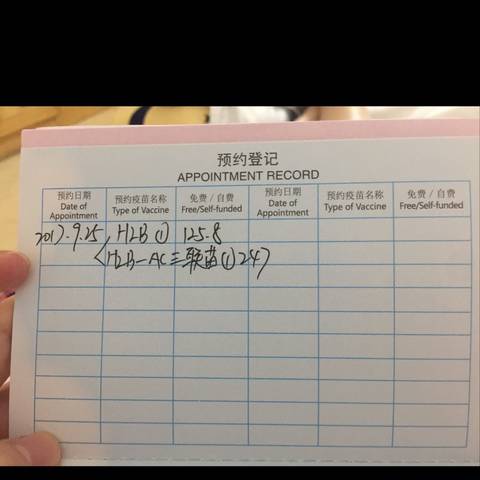 预约登记
APPOINTMENT RECORD
预约日期 预约疫苗名称 免费/自费 预约日期 预约疫苗名称 免费/自费
Date of Appointment Type of Vaccine Free/Self-funded Date of Appointment Type of Vaccine Free/Self-funded
2017.9.25 HLB① 125.8
HLB-AC三联苗① 247